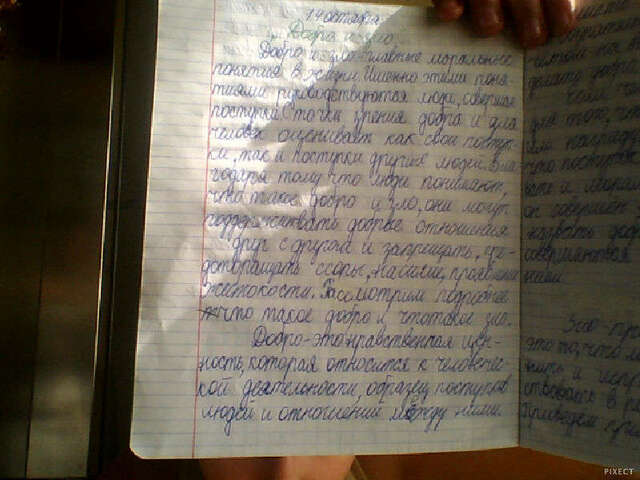 14 октября
Добро и зло.
Добро и зло - главные моральные
понятия в жизни. Именно этими поня-
тиями руководствуются люди, совершая
поступки. С точки зрения добра и зла
человек оценивает как свои поступ-
ки, так и поступки других людей. Бла-
годаря тому, что люди понимают,
что такое добро и зло, они могут
поддерживать добрые отношения
друг с другом и запрещать, пре-
дотвращать ссоры, насилие, проявления
жестокости. Рассмотрим подробнее
что такое добро и что такое зло.
Добро - это нравственная цен-
ность, которая относится к человечес-
кой деятельности, образец поступков
людей и отношений между ними.
делать добр
для того, чт
что поступае
он совершает
совершаются
нием
Зло - про
это то, что м
PIXECT